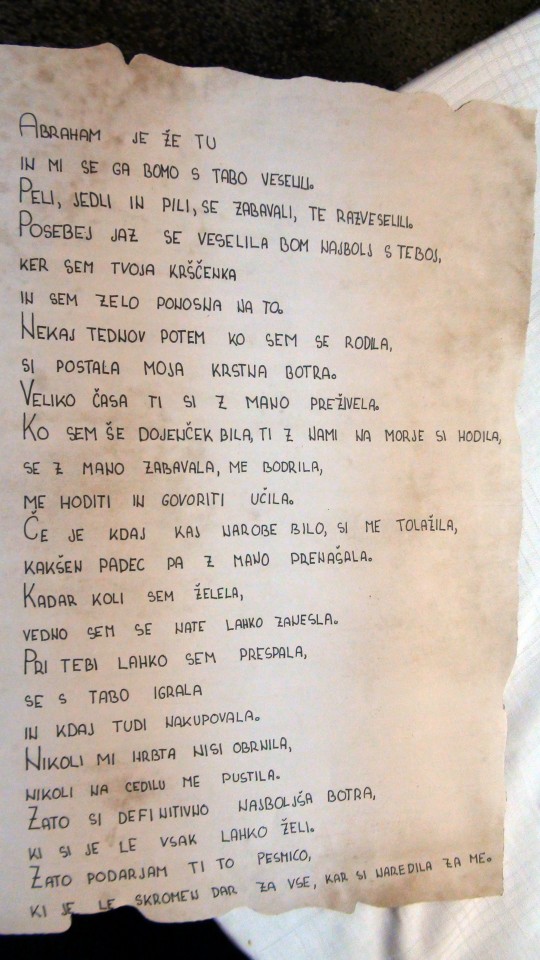 ABRAHAM JE ŽE TU
IN MI SE GA BOMO S TABO VESELILI.
PELI, JEDLI IN PILI, SE ZABAVALI, TE RAZVESELILI.
POSEBEJ JAZ SE VESELILA BOM NAJBOLJ S TEBOJ,
KER SEM TVOJA KRŠČENKA
IN SEM ZELO PONOSNA NA TO.
NEKAJ TEDNOV POTEM KO SEM SE RODILA,
SI POSTALA MOJA KRSTNA BOTRA.
VELIKO ČASA TI SI Z MANO PREŽIVELA.
KO SEM ŠE DOJENČEK BILA, TI Z NAMI NA MORJE SI HODILA,
SE Z MANO ZABAVALA, ME BODRILA,
ME HODITI IN GOVORITI UČILA.
ČE JE KDAJ KAJ NAROBE BILO, SI ME TOLAŽILA,
KAKŠEN PADEC PA Z MANO PRENAŠALA.
KADAR KOLI SEM ŽELELA,
VEDNO SEM SE NATE LAHKO ZANESLA.
PRI TEBI LAHKO SEM PRESPALA,
SE S TABO IGRALA
IN KDAJ TUDI NAKUPOVALA.
NIKOLI MI HRBTA NISI OBRNILA,
NIKOLI NA CEDILU ME PUSTILA.
ZATO SI DEFINITIVNO NAJBOLJŠA BOTRA,
KI SI JE LE VSAK LAHKO ŽELI.
ZATO PODARJAM TI TO PESMICO,
KI JE LE SKROMEN DAR ZA VSE, KAR SI NAREDILA ZA ME.